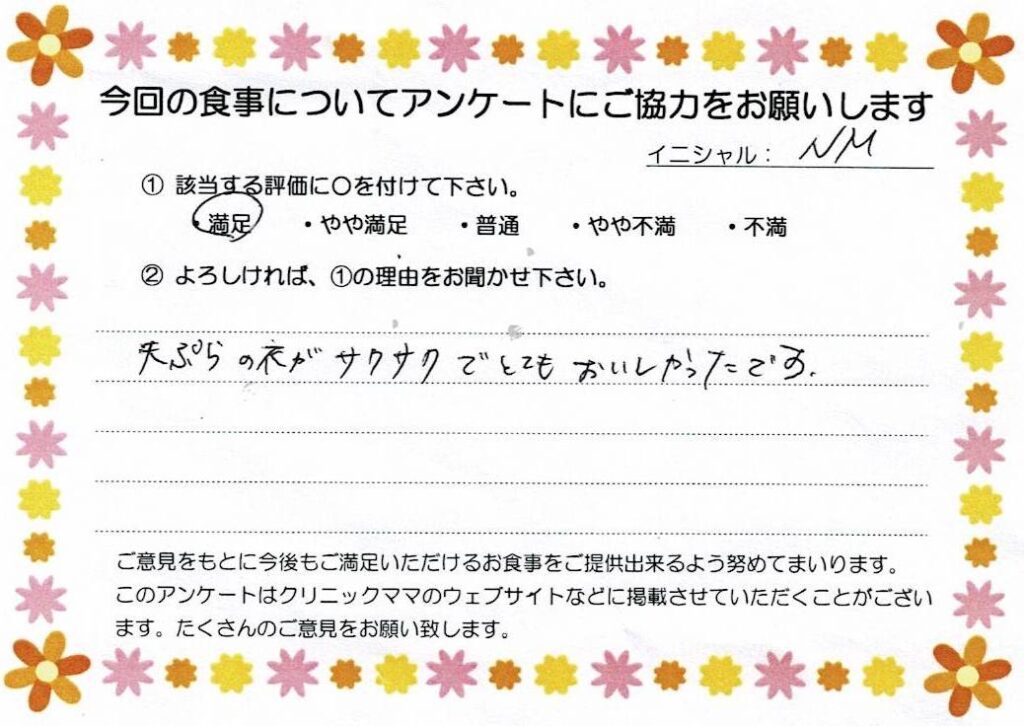 今回の食事についてアンケートにご協力をお願いします
イニシャル： NM
① 該当する評価に〇を付けて下さい。
・満足 ・やや満足 ・普通 ・やや不満 ・不満
② よろしければ、①の理由をお聞かせ下さい。
天ぷらの衣がサクサクでとてもおいしかったです.
ご意見をもとに今後もご満足いただけるお食事をご提供出来るよう努めてまいります。
このアンケートはクリニックママのウェブサイトなどに掲載させていただくことがござい
ます。たくさんのご意見をお願い致します。